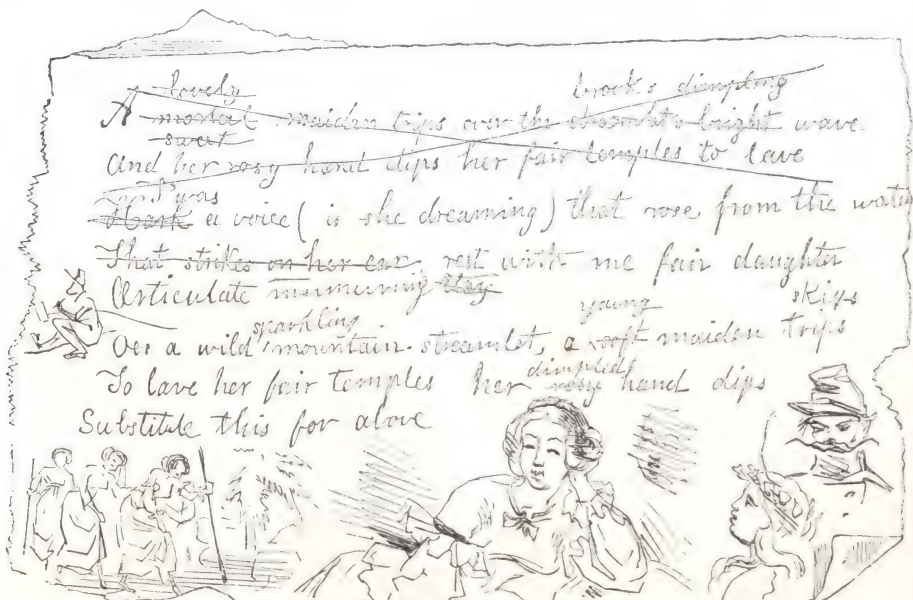 lovely brooks dimpling
A mortal maiden trips over the streamlet's bright wave
sweet
And her rosy hand dips her fair temples to lave
'Twas
Hark a voice ( is she dreaming ) that rose from the water
That strikes on her ear, rest with me fair daughter
Articulate murmuring stay
sparkling young skips
Oer a wild mountain-streamlet, a soft maiden trips
dimpled
To lave her fair temples her rosy hand dips
Substitute this for above